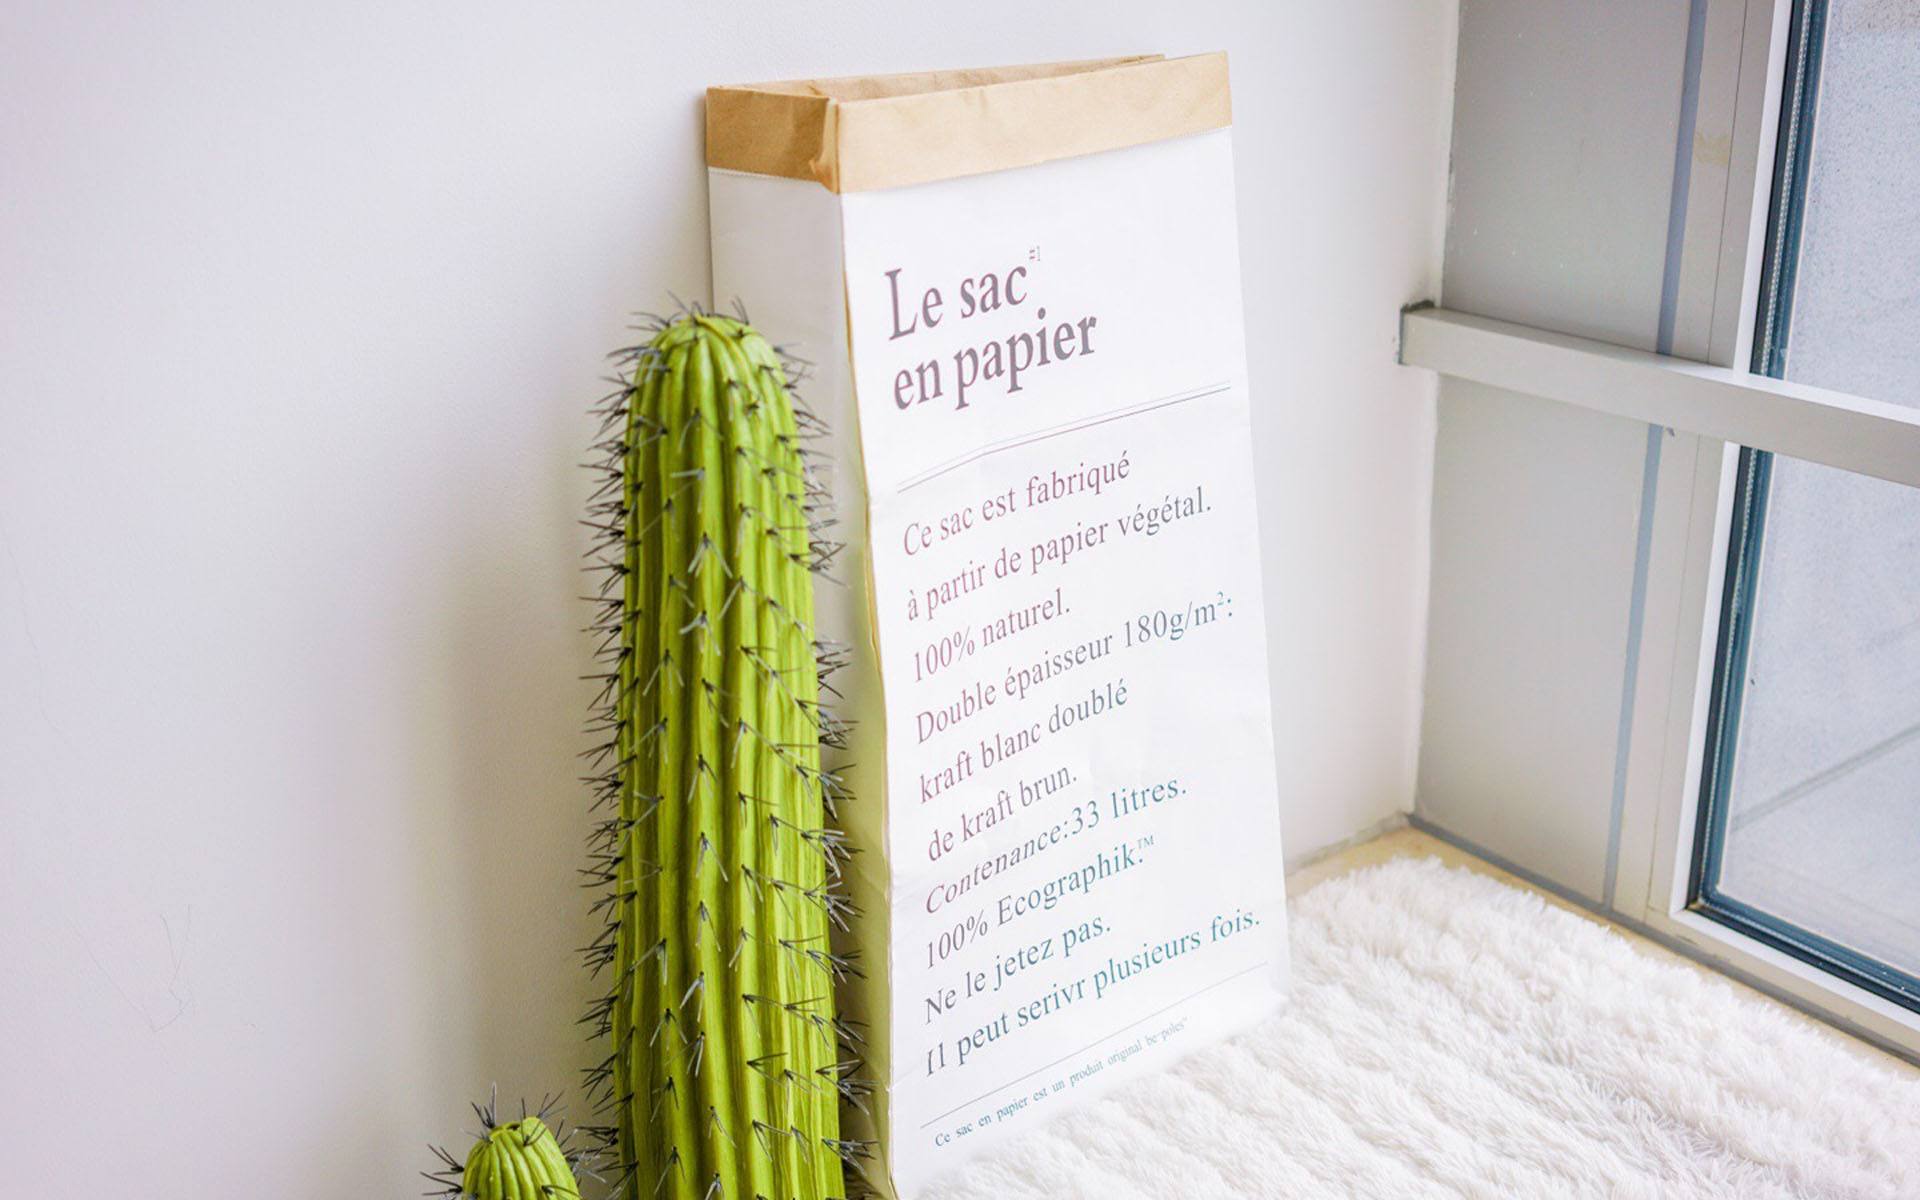 Le sac #1
en papier
Ce sac est fabriqué
à partir de papier végétal.
100% naturel.
Double épaisseur 180g/m²:
kraft blanc doublé
de kraft brun.
Contenance:33 litres.
100% Ecographik.™
Ne le jetez pas.
Il peut serivr plusieurs fois.
Ce sac en papier est un produit original be-poles"